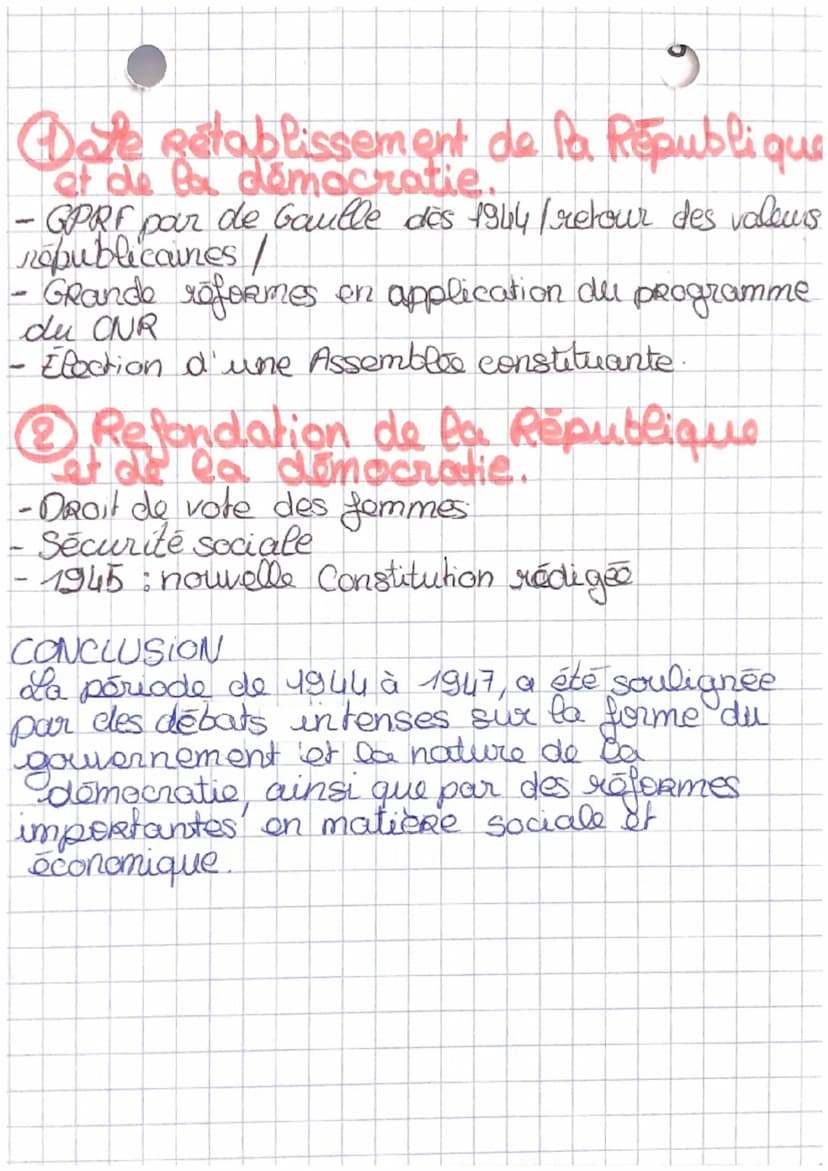 ① Date rétablissement de la République
et de la démocratie.
- GPRF par de Gaulle dès 1944 / retour des valeurs
républicaines /
- Grande réformes en application du programme
du CNR
- Élection d'une Assemblée constituante.
② Refondation de la République
et de la démocratie.
- Droit de vote des femmes
- Sécurité sociale
- 1945 : nouvelle Constitution rédigée
CONCLUSION
La période de 1944 à 1947, a été soulignée
par des débats intenses sur la forme du
gouvernement et la nature de la
démocratie, ainsi que par des réformes
importantes en matière sociale et
économique.